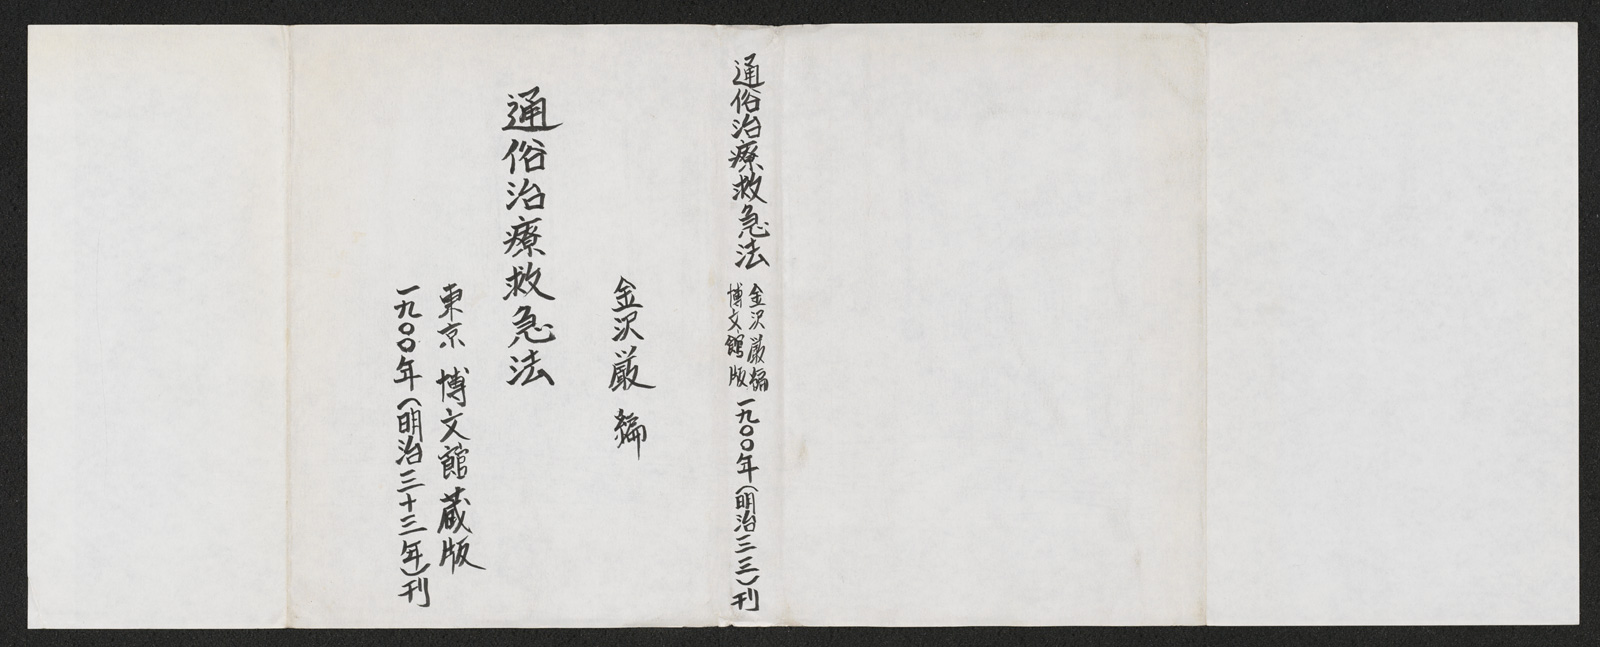 通俗治療救急法
金沢厳編
博文館版
一九〇〇年(明治三三)刊
金沢厳 編
通俗治療救急法
東京 博文館蔵版
一九〇〇年(明治三十三年)刊